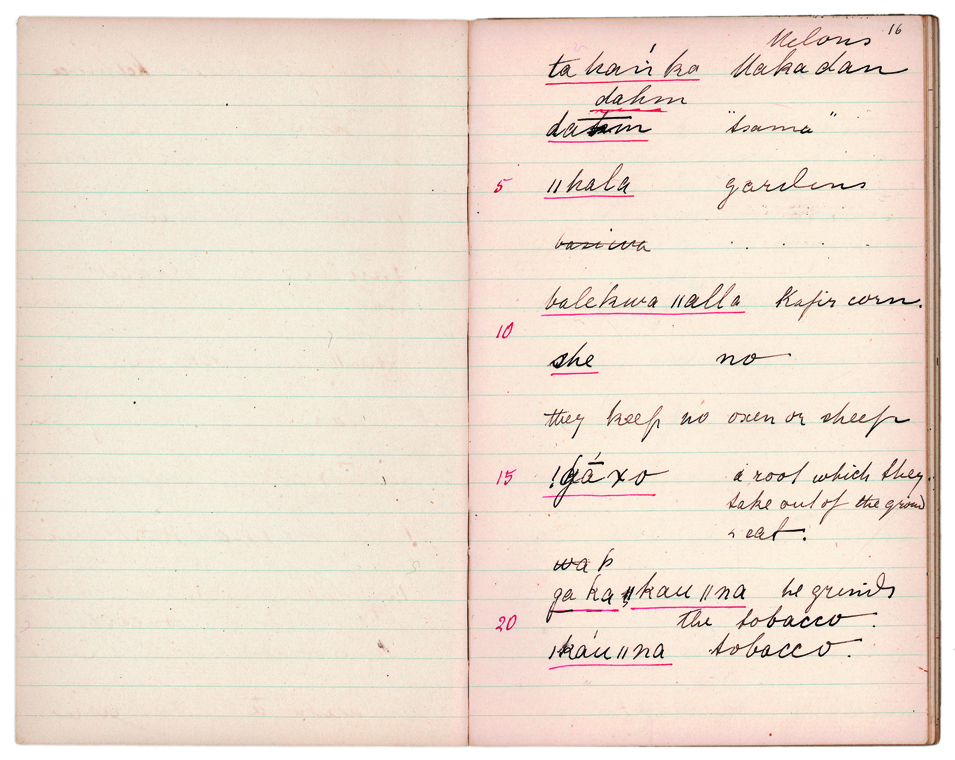 16
Melons
ta kań ka Makadan
dahm
dahm "tsama"
5 ǁkala gardens
. . . .
balekwa ǁalla Kafir corn.
10
she no
they keep no oxen or sheep
15 !gā́xo a root which they
take out of the ground
& eat.
ga ka ǁkau ǁna he grinds
20 the tobacco.
ǀkáu ǁna tobacco.